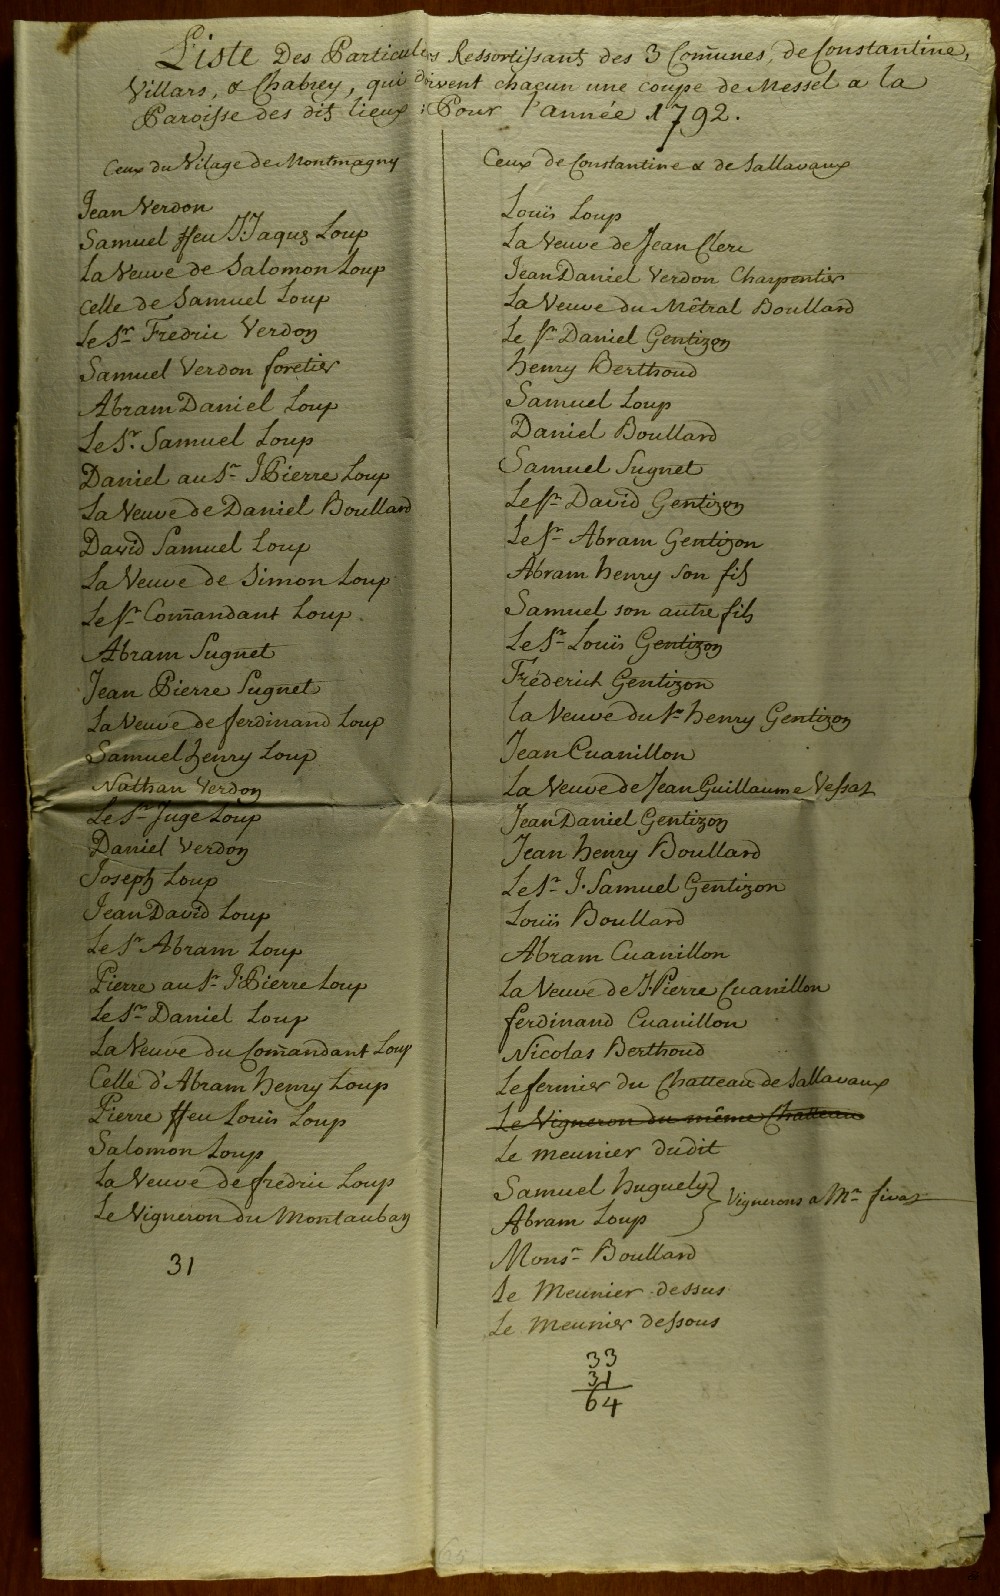 Liste Des Particuliers Ressortissants des 3 Com̃unes, de Constantine,
Villars, & Chabrey, qui doivent chacun une coupe de Messel a la
Paroisse des dits lieux : Pour l'année 1792.
Ceux du Vilage de Montmagny
Jean Verdon
Samuel ffeu J: Jaques Loup
La Veuve de Salomon Loup
Celle de Samuel Loup
Le Sr. Fredric Verdon
Samuel Verdon foretier
Abram Daniel Loup
Le Sr. Samuel Loup
Daniel au Sr. J: Pierre Loup
La Veuve de Daniel Boullard
David Samuel Loup
La Veuve de Simon Loup
Le Sr. Com̃andant Loup
Abram Sugnet
Jean Pierre Sugnet
La Veuve de ferdinand Loup
Samuel henry Loup
Nathan Verdon
Le Sr. Juge Loup
Daniel Verdon
Joseph Loup
Jean David Loup
Le Sr. Abram Loup
Pierre au Sr. J: Pierre Loup
Le Sr. Daniel Loup
La Veuve du Com̃andant Loup
Celle d'Abram henry Loup
Pierre ffeu Louis Loup
Salomon Loup
La Veuve de fredric Loup
Le Vigneron du Montauban
31
Ceux de Constantine & de Sallavaux
Louïs Loup
La Veuve de Jean Clerc
Jean Daniel Verdon Charpentier
La Veuve du Mêtral Boullard
Le Sr. Daniel Gentizon
henry Berthoud
Samuel Loup
Daniel Boullard
Samuel Sugnet
Le Sr. David Gentizon
Le Sr. Abram Gentizon
Abram henry son fils
Samuel son autre fils
Le Sr. Louïs Gentizon
Fréderich Gentizon
la Veuve du Sr. henry Gentizon
Jean Cuanillon
La Veuve de Jean Guillaume Vessaz
Jean Daniel Gentizon
Jean henry Boullard
Le Sr. J. Samuel Gentizon
Louïs Boullard
Abram Cuanillon
La Veuve de J: Pierre Cuanillon
ferdinand Cuanillon
Nicolas Berthoud
Le fermier du Chatteau de Sallavaux
Le Vigneron du même Chatteau
Le meunier dudit
Samuel huguely
Abram Loup
} Vignerons a Mr. fivaz
Monsr. Boullard
Le Meunier dessus
Le Meunier dessous
33
31
64